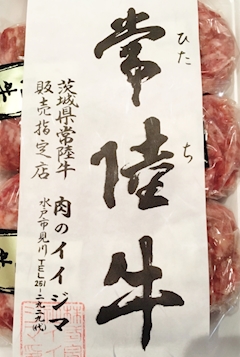 常陸牛
ひたち
茨城県常陸牛
販売指定店
肉のイイジマ
水戸市見川TEL251-二九二九(代)